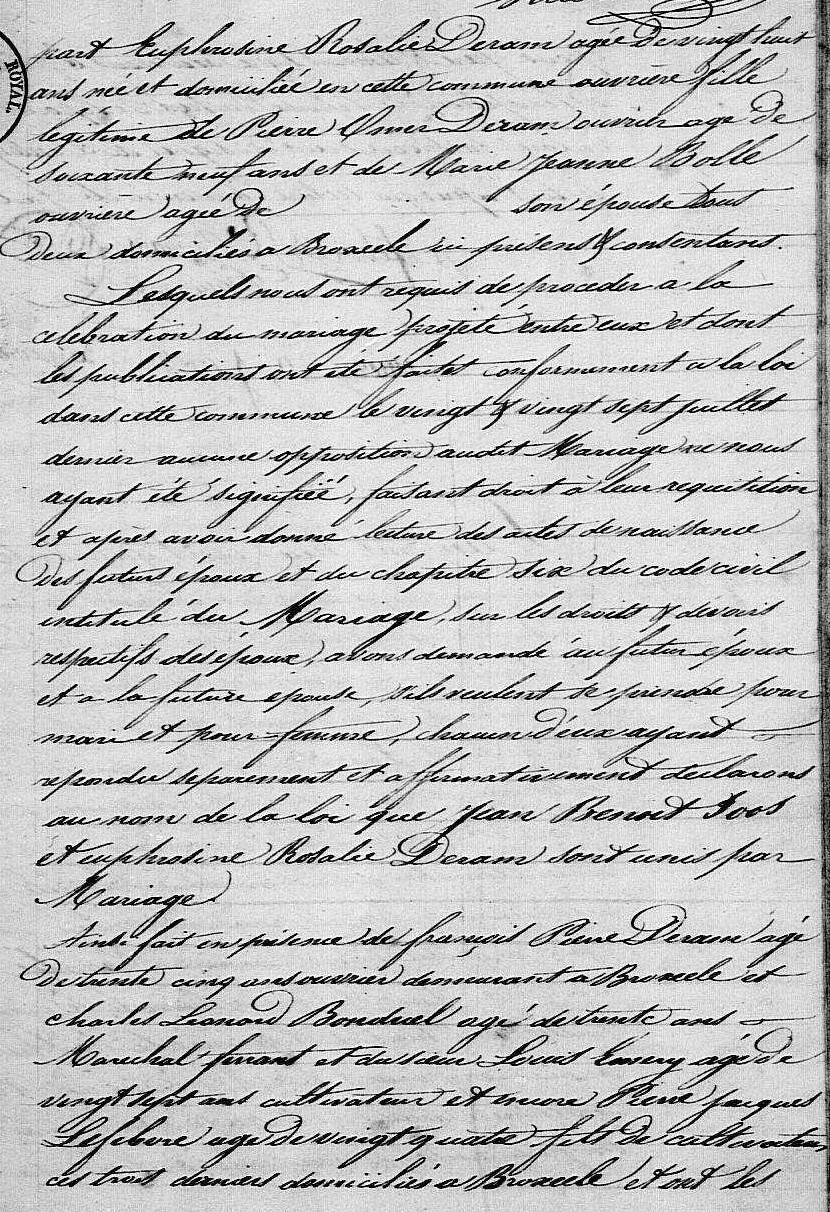 part Euphrosine Rosalie Deram agée de vingt huit
ROYAL.
ans né et domiciliée en cette commune ouvrière fille
légitime de Pierre Omer Deram ouvrier age de
soixante neuf ans et de Marie Jeanne Bolle
ouvriere agée de son épouse tous
deux domiciliés a Broxeele ici présens & consentans.
Lesquels nous ont requis de proceder a la
celebration du mariage projeté entre eux et dont
les publications ont été faites conformement a la loi
dans cette commune le vingt & vingt sept juillet
dernier aucune opposition audit Mariage ne nous
ayant été signifiée, faisant droit à leur requisition
et après avoir donné lecture des actes de naissance
des futurs époux et du chapitre six du code civil
intitulé du Mariage, sur les droits & devoirs
respectifs des époux, avons demandé au futur époux
et a la future epouse, s'ils veulent se prendre pour
mari et pour femme, chacun d'eux ayant
repondu separement et affirmativement declarons
au nom de la loi que Jean Benoit Joos
et euphrosine Rosalie Deram sont unis par
Mariage.
Ainsi fait en présence de françois Pierre Deram agé
de trente cinq ans ouvrier demeurant a Broxeele et
charles Leonard Bonduel agé de trente ans
Marechal ferrant et du sieur Louis Emery agé de
vingt sept ans cultivateur et encore Pierre Jacques
Lefebvre age de vingt quatre fils de cultivateur
ces trois derniers domiciliés a Broxeele et ont les